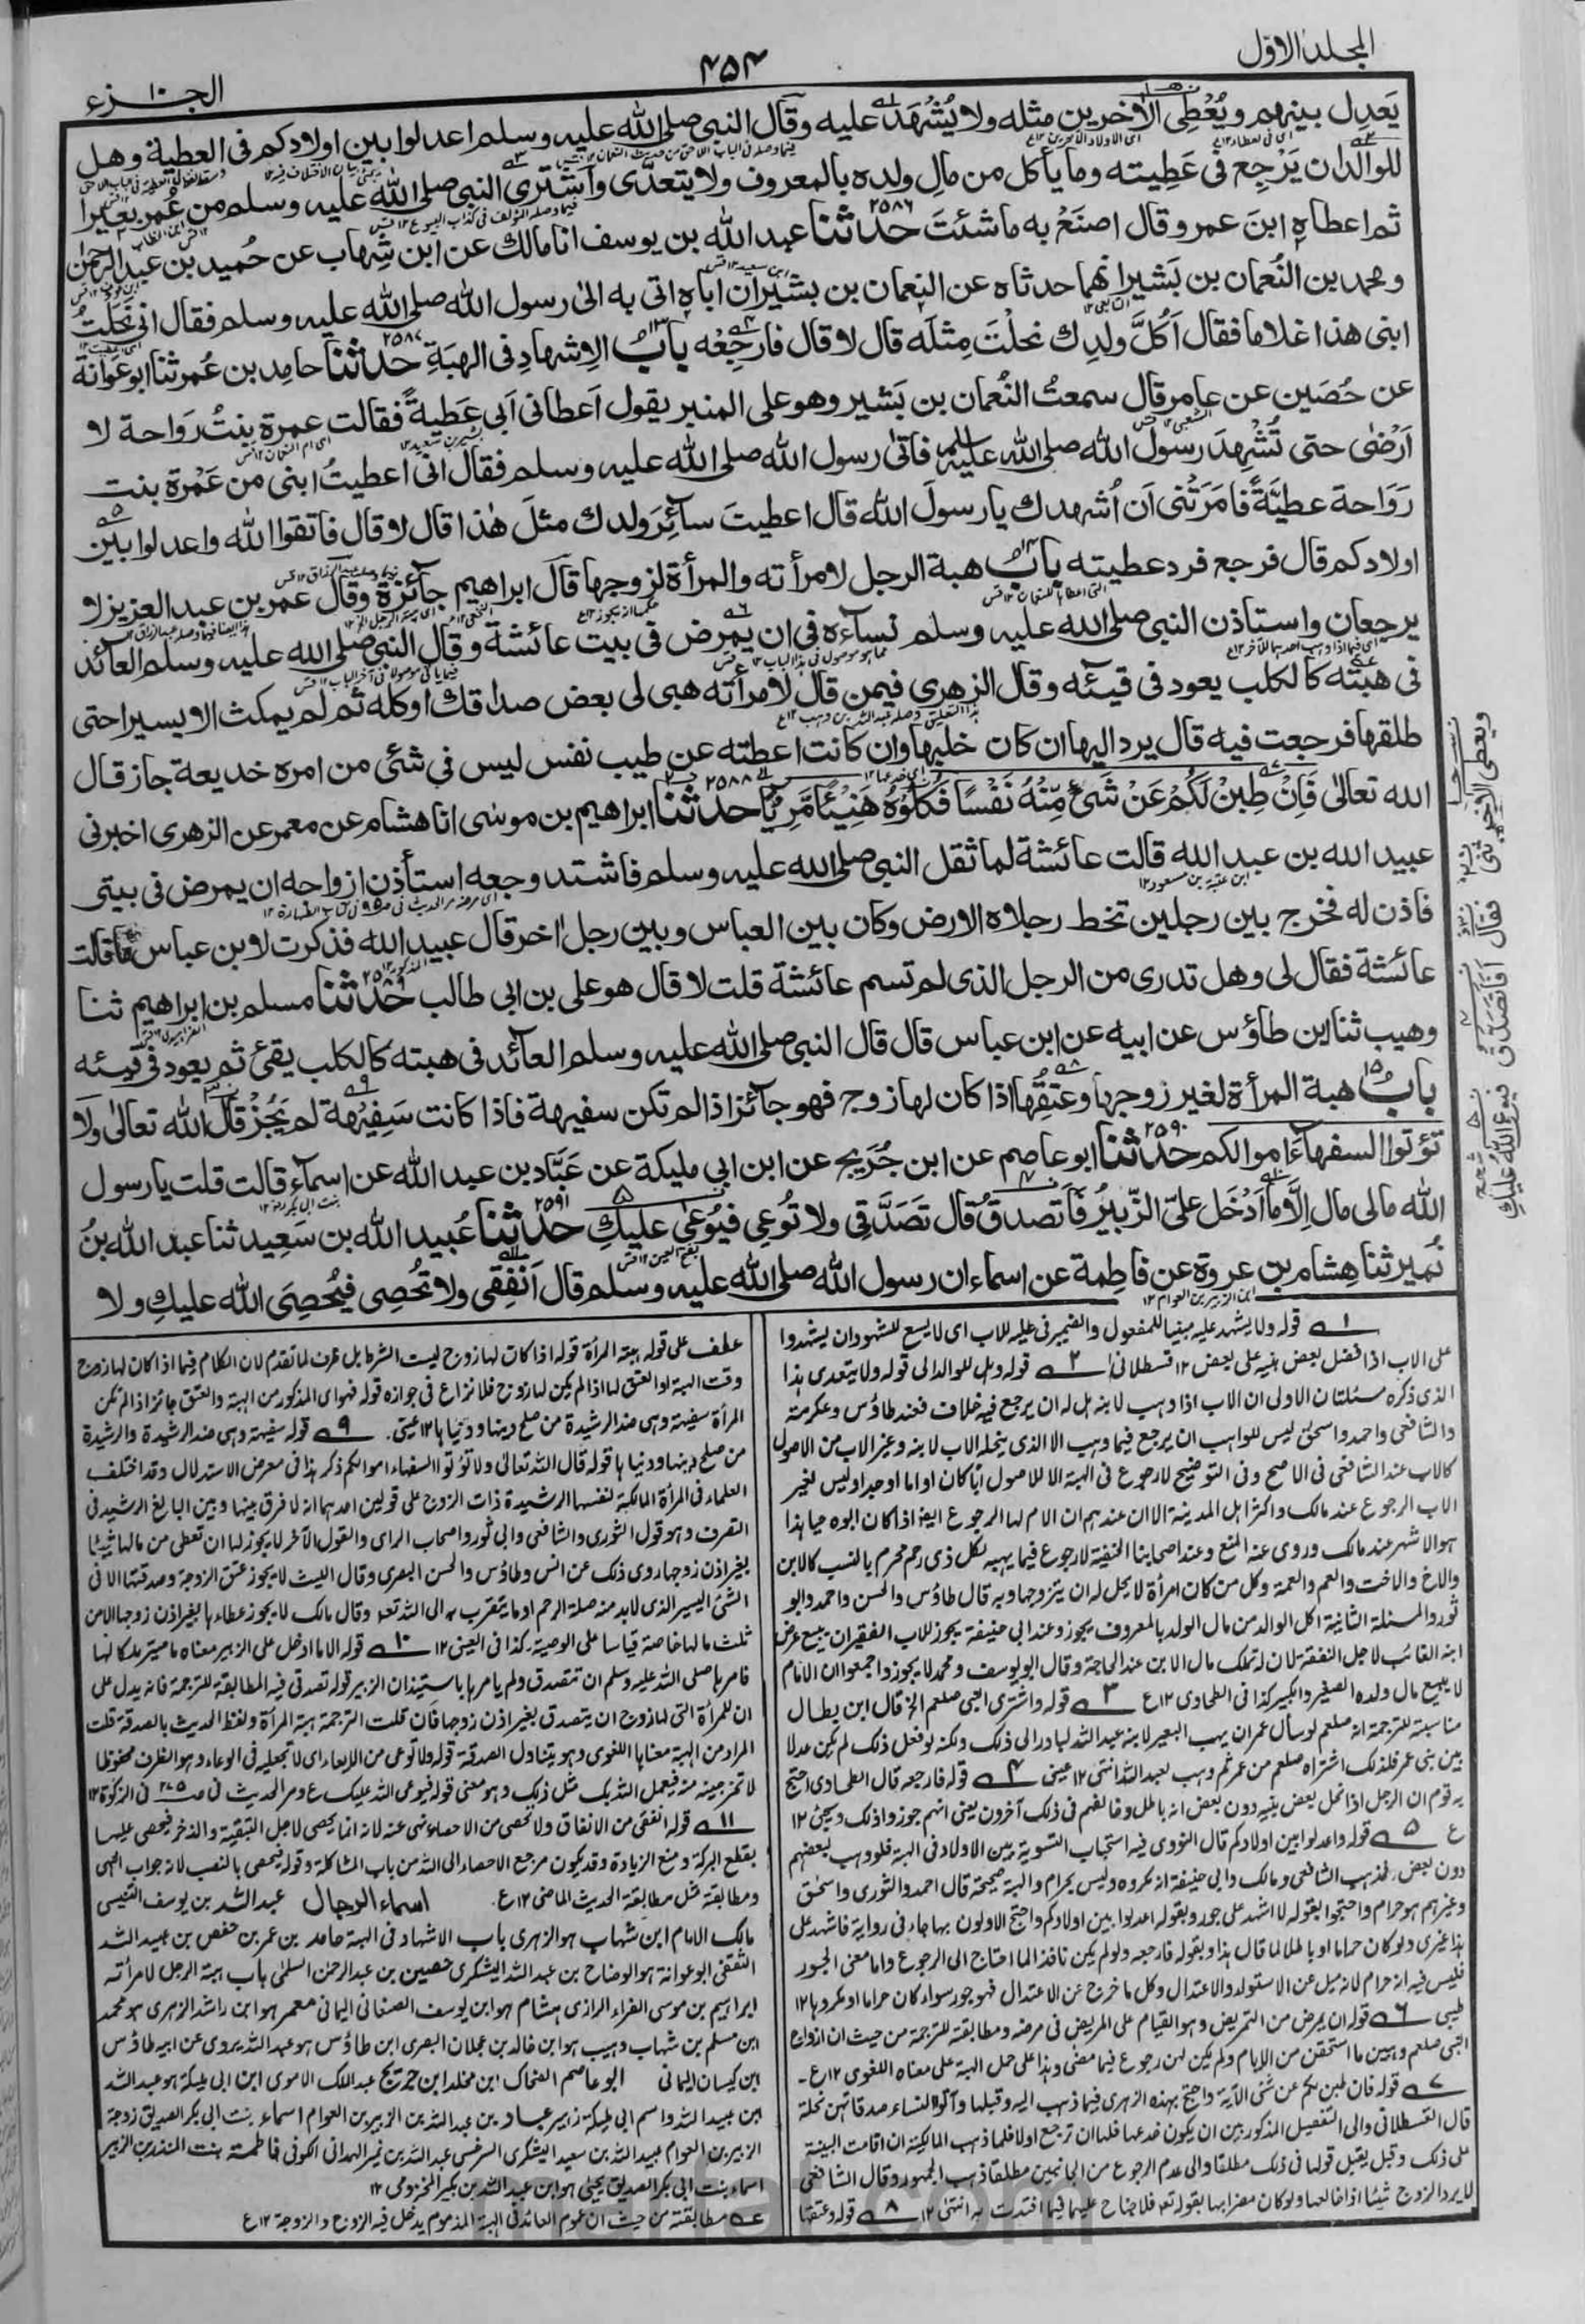 المجلد الاول
۴۵۴
الجزء ۱۰
يَعدِل بينهم ويُعْطِى الأخرين مثله ولا يُشْهَد عليه وقال النبي صلى الله عليه وسلم اعدلوا بين اولادكم فى العطية وهل
للوالد ان يَرْجِع فى عَطِيته وما يأكل من مالِ ولده بالمعروف ولا يتعدّى واشترى النبي صلى الله عليه وسلم من عُمر بعيرا
ثم اعطاه ابنَ عمر وقال اصنَعْ به ما شئتَ ۲۵۸۶ حدثنا عبد الله بن يوسف انا مالك عن ابن شِهاب عن حُميد بن عبد الرحمٰن
ومحمد بن النُعمان بن بَشير انهما حدثاه عن النعمان بن بشير ان اباه اتى به الىٰ رسول الله صلى الله عليه وسلم فقال انى نَحَلتُ
ابنى هذا غلاما فقال اَكُلَّ ولدِك نحلْتَ مِثلَه قال لا قال فارجِعْه باب الاِشهادِ فى الهِبَةِ ۲۵۸۷ حدثنا حامِد بن عُمر ثنا ابو عَوانة
عن حُصَين عن عامر قال سمعتُ النُعمان بن بَشير وهو على المنبر يقول اَعطانى اَبى عَطيةً فقالت عمرة بنتُ رَواحة لا
اَرْضٰى حتى تُشْهِدَ رسول الله صلى الله عليه وسلم فاتىٰ رسول الله صلى الله عليه وسلم فقال انى اعطيتُ ابنى من عَمْرة بنت
رَوَاحة عطيَّةً فامَرَتْنى اَن اُشهدك يا رسولَ الله قال اعطيتَ سائِرَ ولدك مثلَ هٰذا قال لا قال فاتقوا الله واعدلوا بين
اولادكم قال فرجع فرد عطيته باب هبة الرجل لامرأته والمرأة لزوجها قال ابراهيم جائزة وقال عمر بن عبد العزيز لا
يرجعان واستاذن النبى صلى الله عليه وسلم نساءه فى ان يمرض فى بيت عائشة وقال النبى صلى الله عليه وسلم العائد
فى هبته كالكلب يعود فى قيئه وقال الزهرى فيمن قال لامرأته هبى لى بعض صداقك او كله ثم لم يمكث الا يسيرا حتى
طلقها فرجعت فيه قال يرد اليها ان كان خلبها وان كانت اعطته عن طيب نفس ليس فى شئ من امره خديعة جاز قال
الله تعالىٰ فَاِنْ طِبْنَ لَكُمْ عَنْ شَىْءٍ مِّنْهُ نَفْسًا فَكُلُوْهُ هَنِيْئًا مَّرِيْٓئًا ۲۵۸۸ حدثنا ابراهيم بن موسٰى انا هشام عن معمر عن الزهرى اخبرنى
عبيد الله بن عبد الله قالت عائشة لما ثقل النبى صلى الله عليه وسلم فاشتد وجعه استأذن ازواجه ان يمرض فى بيتى
فاذن له فخرج بين رجلين تخط رجلاه الارض وكان بين العباس وبين رجل اخر قال عبيد الله فذكرت لابن عباس ما قالت
عائشة فقال لى وهل تدرى من الرجل الذى لم تسم عائشة قلت لا قال هو على بن ابى طالب ۲۵۸۹ حدثنا مسلم بن ابراهيم ثنا
وهيب ثنا ابن طاؤس عن ابيه عن ابن عباس قال قال النبى صلى الله عليه وسلم العائد فى هبته كالكلب يقئ ثم يعود فى قيئه
باب هبة المرأة لغير زوجها وعتقها اذا كان لها زوج فهو جائز اذا لم تكن سفيهة فاذا كانت سَفِيْهة لم يَجُزْ قال الله تعالىٰ ولا
تؤتوا السفهاء اموالكم ۲۵۹۰ حدثنا ابو عاصم عن ابن جُرَيج عن ابن ابى مليكة عن عَبَّاد بن عبد الله عن اسماء قالت قلت يا رسول
الله مالى مال اِلا ما اَدْخَل علىّ الزُّبيرُ فاَتصدقُ قال تَصَدَّقى ولا تُوعى فيُوعٰى عليكِ ۲۵۹۱ حدثنا عُبيد الله بن سَعِيد ثنا عبد الله بنُ
نُمير ثنا هِشام بن عروة عن فاطِمة عن اسماء ان رسول الله صلى الله عليه وسلم قال اَنْفِقى ولا تُحْصِى فيُحْصِىَ الله عليكِ ولا
ويعطى الاخر
فقال
أفأتصدق
فيوعى الله عليك
۱ قوله ولا يشهد عليه مبنيا للمفعول والضمير فى عليه للاب اى لا يسع للشهود ان يشهدوا
على الاب اذا فضل بعض بنيه على بعض ۱۲ قسطلانى ۲ قوله وهل للوالد الى قوله ولا يتعدى هذا
الذى ذكره مسئلتان الاولى ان الاب اذا وهب لابنه هل له ان يرجع فيه خلاف فعند طاؤس وعكرمة
والشافعى واحمد واسحٰق ليس للواهب ان يرجع فيما وهب الا الذى ينحله الاب لابنه وغير الاب من الاصول
كالاب عند الشافعى فى الاصح وفى التوضيح لا رجوع فى الهبة الا للاصول ابا كان او اما او جدا وليس لغير
الاب الرجوع عند مالك واكثر اهل المدينة الا ان عندهم ان الام لها الرجوع ايضا اذا كان ابوه حيا هذا
هو الاشهر عند مالك وروى عنه المنع وعند اصحابنا الحنفية لا رجوع فيما يهبه لكل ذى رحم محرم بالنسب كالابن
والاخ والاخت والعم والعمة وكل من كان امرأة لا يحل له ان يتزوجها وبه قال طاؤس والحسن واحمد وابو
ثور والمسئلة الثانية اكل الوالد من مال الولد بالمعروف يجوز وعند ابى حنيفة يجوز للاب الفقير ان يبيع عرض
ابنه الغائب لاجل النفقة لان له تملك مال الابن عند الحاجة وقال ابو يوسف ومحمد لا يجوز واجمعوا ان الام
لا يبيع مال ولده الصغير والكبير كذا فى الطحاوى ۱۲ ع ۳ قوله واشترى النبى صلعم الخ قال ابن بطال
مناسبته للترجمة انه صلعم لو سأل عمر ان يهب البعير لابنه عبد الله لبادر الى ذلك ولكنه لو فعل ذلك لم يكن عدلا
بين بنى عمر فلذلك اشتراه صلعم من عمر ثم وهب لعبد الله انتهى ۱۲ عينى ۴ قوله فارجعه قال الطحاوى احتج
به قوم ان الرجل اذا نحل بعض بنيه دون بعض انه باطل وخالفهم فى ذلك آخرون يعنى انهم جوزوا ذلك ويجئ ۱۲
ع ۵ قوله واعدلوا بين اولادكم قال النووى فيه استحباب التسوية بين الاولاد فى الهبة فلو وهب بعضهم
دون بعض فمذهب الشافعى ومالك وابى حنيفة انه مكروه وليس بحرام والهبة صحيحة قال احمد والثورى واسحٰق
وغيرهم هو حرام واحتجوا بقوله لا اشهد على جور وبقوله اعدلوا بين اولادكم واحتج الاولون بما جاء فى رواية فاشهد على
هذا غيرى ولو كان حراما او باطلا لما قال هذا وبقوله فارجعه ولو لم يكن نافذا لما احتاج الى الرجوع واما معنى الجور
فليس فيه انه حرام لانه ميل عن الاستواء والاعتدال وكل ما خرج عن الاعتدال فهو جور سواء كان حراما او مكروها ۱۲
طيبى ۶ قوله ان يمرض من التمريض وهو القيام على المريض فى مرضه ومطابقته للترجمة من حيث ان ازواج
النبى صلعم وهبن ما استحقن من الايام ولم يكن لهن رجوع فيما مضى وهذا على حمل الهبة على معناه اللغوى ۱۲ ع
۷ قوله فان طبن لكم عن شئ الآية واحتج بهذه الزهرى فيما ذهب اليه وقبلها وآتوا النساء صدقاتهن نحلة
قال القسطلانى والى التفصيل المذكور بين ان يكون خدعها فلها ان ترجع اولا فلما ذهب المالكية ان اقامت البينة
على ذلك وقيل يقبل قولها فى ذلك مطلقا والى عدم الرجوع من الجانبين مطلقا ذهب الجمهور وقال الشافعى
لا يرد الزوج شيئا اذا خالعها ولو كان مضرا بها بقوله تعالى فلا جناح عليهما فيما افتدت به انتهىٰ ۱۲ ۸ قوله وعتقها
عطف على قوله هبة المرأة قوله اذا كان لها زوج ليست الشرط بل ظرف لما تقدم لان الكلام فيما اذا كان لها زوج
وقت الهبة او العتق اما اذا لم يكن لها زوج فلا نزاع فى جوازه قوله فهو اى المذكور من الهبة والعتق جائز اذا لم تكن
المرأة سفيهة وهى ضد الرشيدة من صلح دينها ودنياها ۱۲ عينى. ۹ قوله سفيهة وهى ضد الرشيدة والرشيدة
من صلح دينها ودنياها قوله قال الله تعالى ولا تؤتوا السفهاء اموالكم ذكر هذا فى معرض الاستدلال وقد اختلف
العلماء فى المرأة المالكة لنفسها الرشيدة ذات الزوج على قولين احدهما انه لا فرق بينها وبين البالغ الرشيد فى
التصرف وهو قول الثورى والشافعى وابى ثور واصحاب الراى والقول الآخر لا يجوز لها ان تعطى من مالها شيئا
بغير اذن زوجها روى ذلك عن انس وطاؤس والحسن البصرى وقال الليث لا يجوز عتق الزوجة وصدقتها الا فى
الشئ اليسير الذى لا بد منه صلة الرحم او ما يتقرب به الى الله تعالى وقال مالك لا يجوز عطاءها بغير اذن زوجها الا من
ثلث مالها خاصة قياسا على الوصية. كذا فى العينى ۱۲ ۱۰ قوله الا ما ادخل على الزبير معناه ما صيّر ملكا لها
فامرها صلى الله عليه وسلم ان تتصدق ولم يامرها باستيذان الزبير قوله تصدقى فيه المطابقة للترجمة فانه يدل على
ان للمرأة التى لها زوج ان يتصدق بغير اذن زوجها فان قلت الترجمة هبة المرأة ولفظ الحديث بالصدقة قلت
المراد من الهبة معناها اللغوى وهو يتناول الصدقة قوله ولا توعى من الايعاء اى لا تجعليه فى الوعاء وهو الظرف محفوظا
لا تخرجينه منه فيعمل الله بك مثل ذلك وهو معنى قوله فيوعى الله عليك ع ومر الحديث فى الزكوة ۱۲
۱۱ قوله انفقى من الانفاق ولا تحصى من الاحصاء نهى عنه لانه انما يحصى لاجل التبقية والذخر فيحصى عليها
بقطع البركة ومنع الزيادة وقد يكون مرجع الاحصاء الى الله من باب المشاكلة وقوله فيحصى بالنصب لانه جواب النهى
ومطابقته مثل مطابقة الحديث الماضى ۱۲ ع. اسماء الرجال عبد الله بن يوسف التنيسى
مالك الامام ابن شهاب هو الزهرى باب الاشهاد فى الهبة حامد بن عمر بن حفص بن عبيد الله
الثقفى ابو عوانة هو الوضاح بن عبد الله اليشكرى حصين بن عبد الرحمٰن السلمى باب هبة الرجل لامرأته
ابراهيم بن موسى الفراء الرازى هشام هو ابن يوسف الصنعانى اليمانى معمر هو ابن راشد الزهرى هو محمد
ابن مسلم بن شهاب وهيب هو ابن خالد بن عجلان البصرى ابن طاؤس هو عبد الله يروى عن ابيه طاؤس
ابن كيسان اليمانى ابو عاصم الضحاك ابن مخلد ابن جريج عبد الملك الاموى ابن ابى مليكة هو عبد الله
ابن عبيد الله واسم ابى مليكة زهير عباد بن عبد الله بن الزبير بن العوام اسماء بنت ابى بكر الصديق زوجة
الزبير بن العوام عبيد الله بن سعيد اليشكرى السرخسى عبد الله بن نمير الهمدانى الكوفى فاطمة بنت المنذر بن الزبير
اسماء بنت ابى بكر الصديق يحيىٰ هو ابن عبد الله بن بكير المخزومى ۱۲
عه مطابقته من حيث ان عموم العائد فى الهبة المذموم يدخل فيه الزوج والزوجة ۱۲ ع